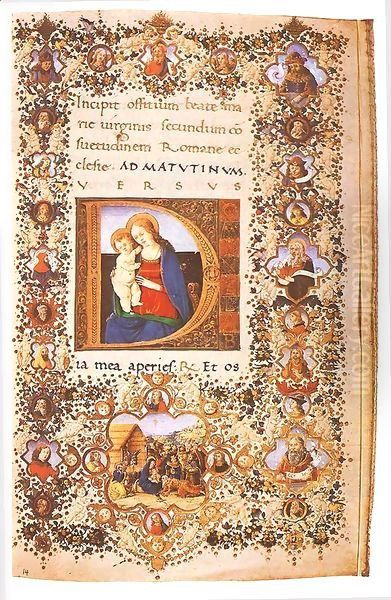 Incipit offitium beate ma
rie virginis secundum co
suetudinem Romane ec
clesie. AD MATUTINUM.
VERSUS
D
B
ia mea aperies. R Et os
14